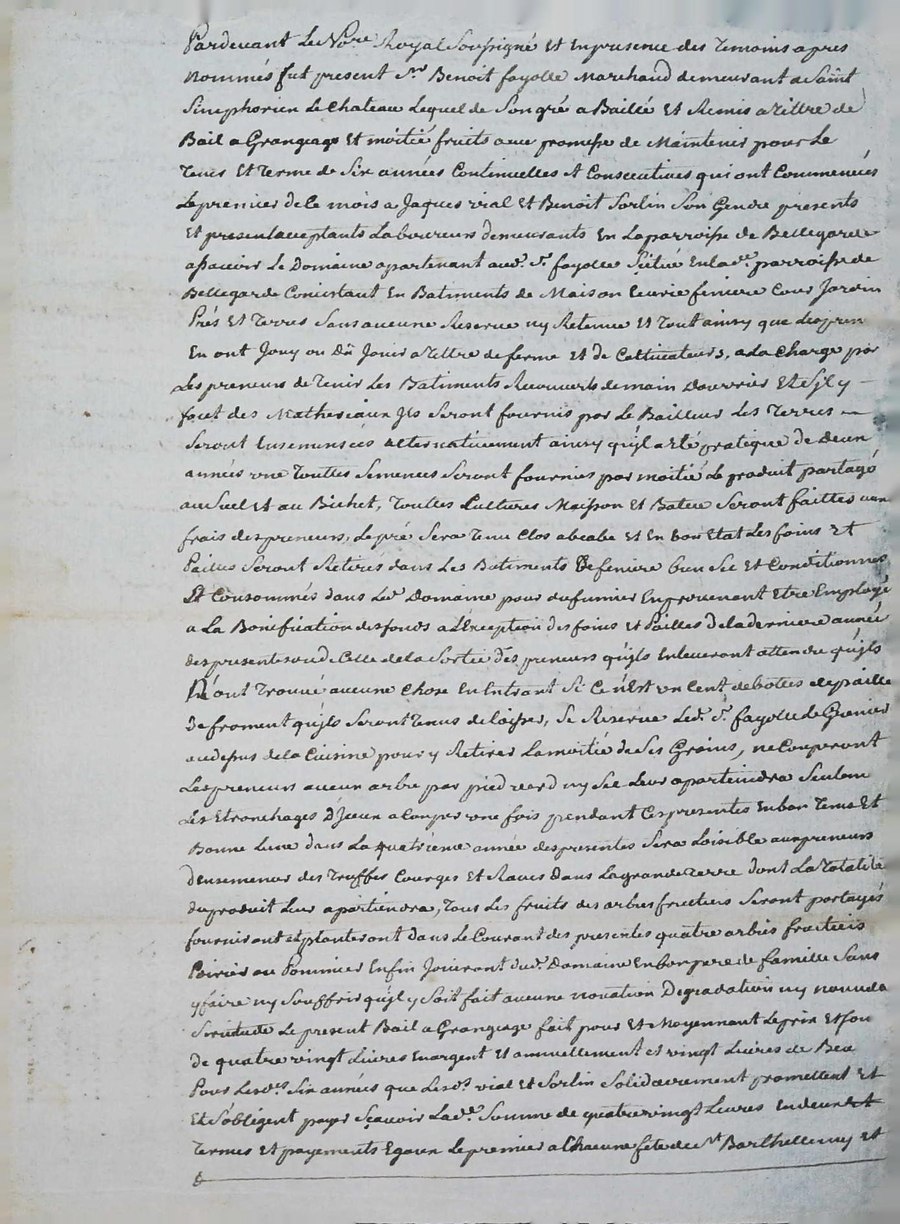 Pardevant Le No.re Royal Soussigné et En presence des Temoins apres
Nommés fut present S.r Benoit fayolle Marchand demeurant a Saint
Simphorien Le Chateau Lequel de Son gré a Baillé Et Remis a Tittre de
Bail a Grangeage Et moitié fruits avec promesse de Maintenir pour Le
Tems Et Terme de Six années Continuelles et Consecutives qui ont Commencés
Le premier de Ce mois a Jaques vial Et Benoit Sorlin Son Gendre presents
Et present acceptants Laboureurs demeurants En La parroisse de Bellegarde
asscavoir Le Domaine apartenant aud. S.r fayolle Scitué En lad.e parroisse de
Bellegarde Concistant En Batiments de Maison Ecurie feniere Cour Jardin
Prés Et Terres Sans aucune Reserve ny Retenue Et Tout ainsy que Les pren
En ont Jouy ou Dû Jouir a Tittre de ferme Et de Cultivateurs, a La Charge par
Les preneurs de Tenir Les Batiments Recouverts de main D'ouvrier Et S'jl y
faut des Mathereiaux Jls Seront fournis par Le Bailleur Les Terres
Seront Ensemensées alternativement ainsy qu'jl a Eté pratiqué de deux
années une Touttes Semences Seront fournies par moitié Le produit partagé
au Suel et au Bichet, Touttes Cultures Moisson Et Bateu Seront faittes aux
frais des preneurs, Le pré Sera Tenu Clos Et En bon Etat Les foins Et
Pailles Seront Retirés dans Les Batiments De feniere bien Sec Et Conditionnés
Et Consommés dans Led. Domaine pour du fumier En provenant Etre Employé
a La Bonification des fonds a L'Exception des foins Et Pailles de la derniere année
des presentes celle de la Sortie des preneurs qu'jls Enleveront attendu qu'jls
N'ont Trouvé aucune Chose En Entrant Si Ce n'Est un Cent de bottes de paille
De froment qu'jls Seront Tenus de laisser, Se Reserve Led. S.r fayolle Le Grenier
au dessus de la Cuisine pour y Retirer La moitié de Ses Grains, ne Couperont
Les preneurs aucun arbre par pied verd ny Sec Leur apartiendra Seulem
Les Etronchages D'jceux a Couper une fois pendant Ces presentes En bon Tems Et
Bonne Lune dans La quatrieme année des presentes Sera Loisible aux preneurs
d'ensemencer des Truffes Courges Et Raves Dans La grande Terre dont La Totalité
du produit Leur apartiendra, Tous Les fruits des arbres fruitiers Seront partagés
fourniront et planteront dans Le Courant des presentes quatre arbres fruitiers
Poirier ou Pommier Enfin Jouiront dud. Domaine En bon pere de famille Sans
y faire ny Souffrir qu'jl y Soit fait aucune novation Degradation ny nouvelle
Servitude Le present Bail a Grangeage fait pour Et Moyennant Le prix Et Som
De quatre vingt Livres En argent Et annuellement et vingt Livres de Beu
Pour Lesd.s Six années que Lesd.s vial et Sorlin Solidairement promettent Et
Et S'obligent payer Sçavoir Lad.e Somme de quatre vingt Livres En deux
Termes Et payements Egaux Le premier a Chacune fete de S.t Barthellemy Et